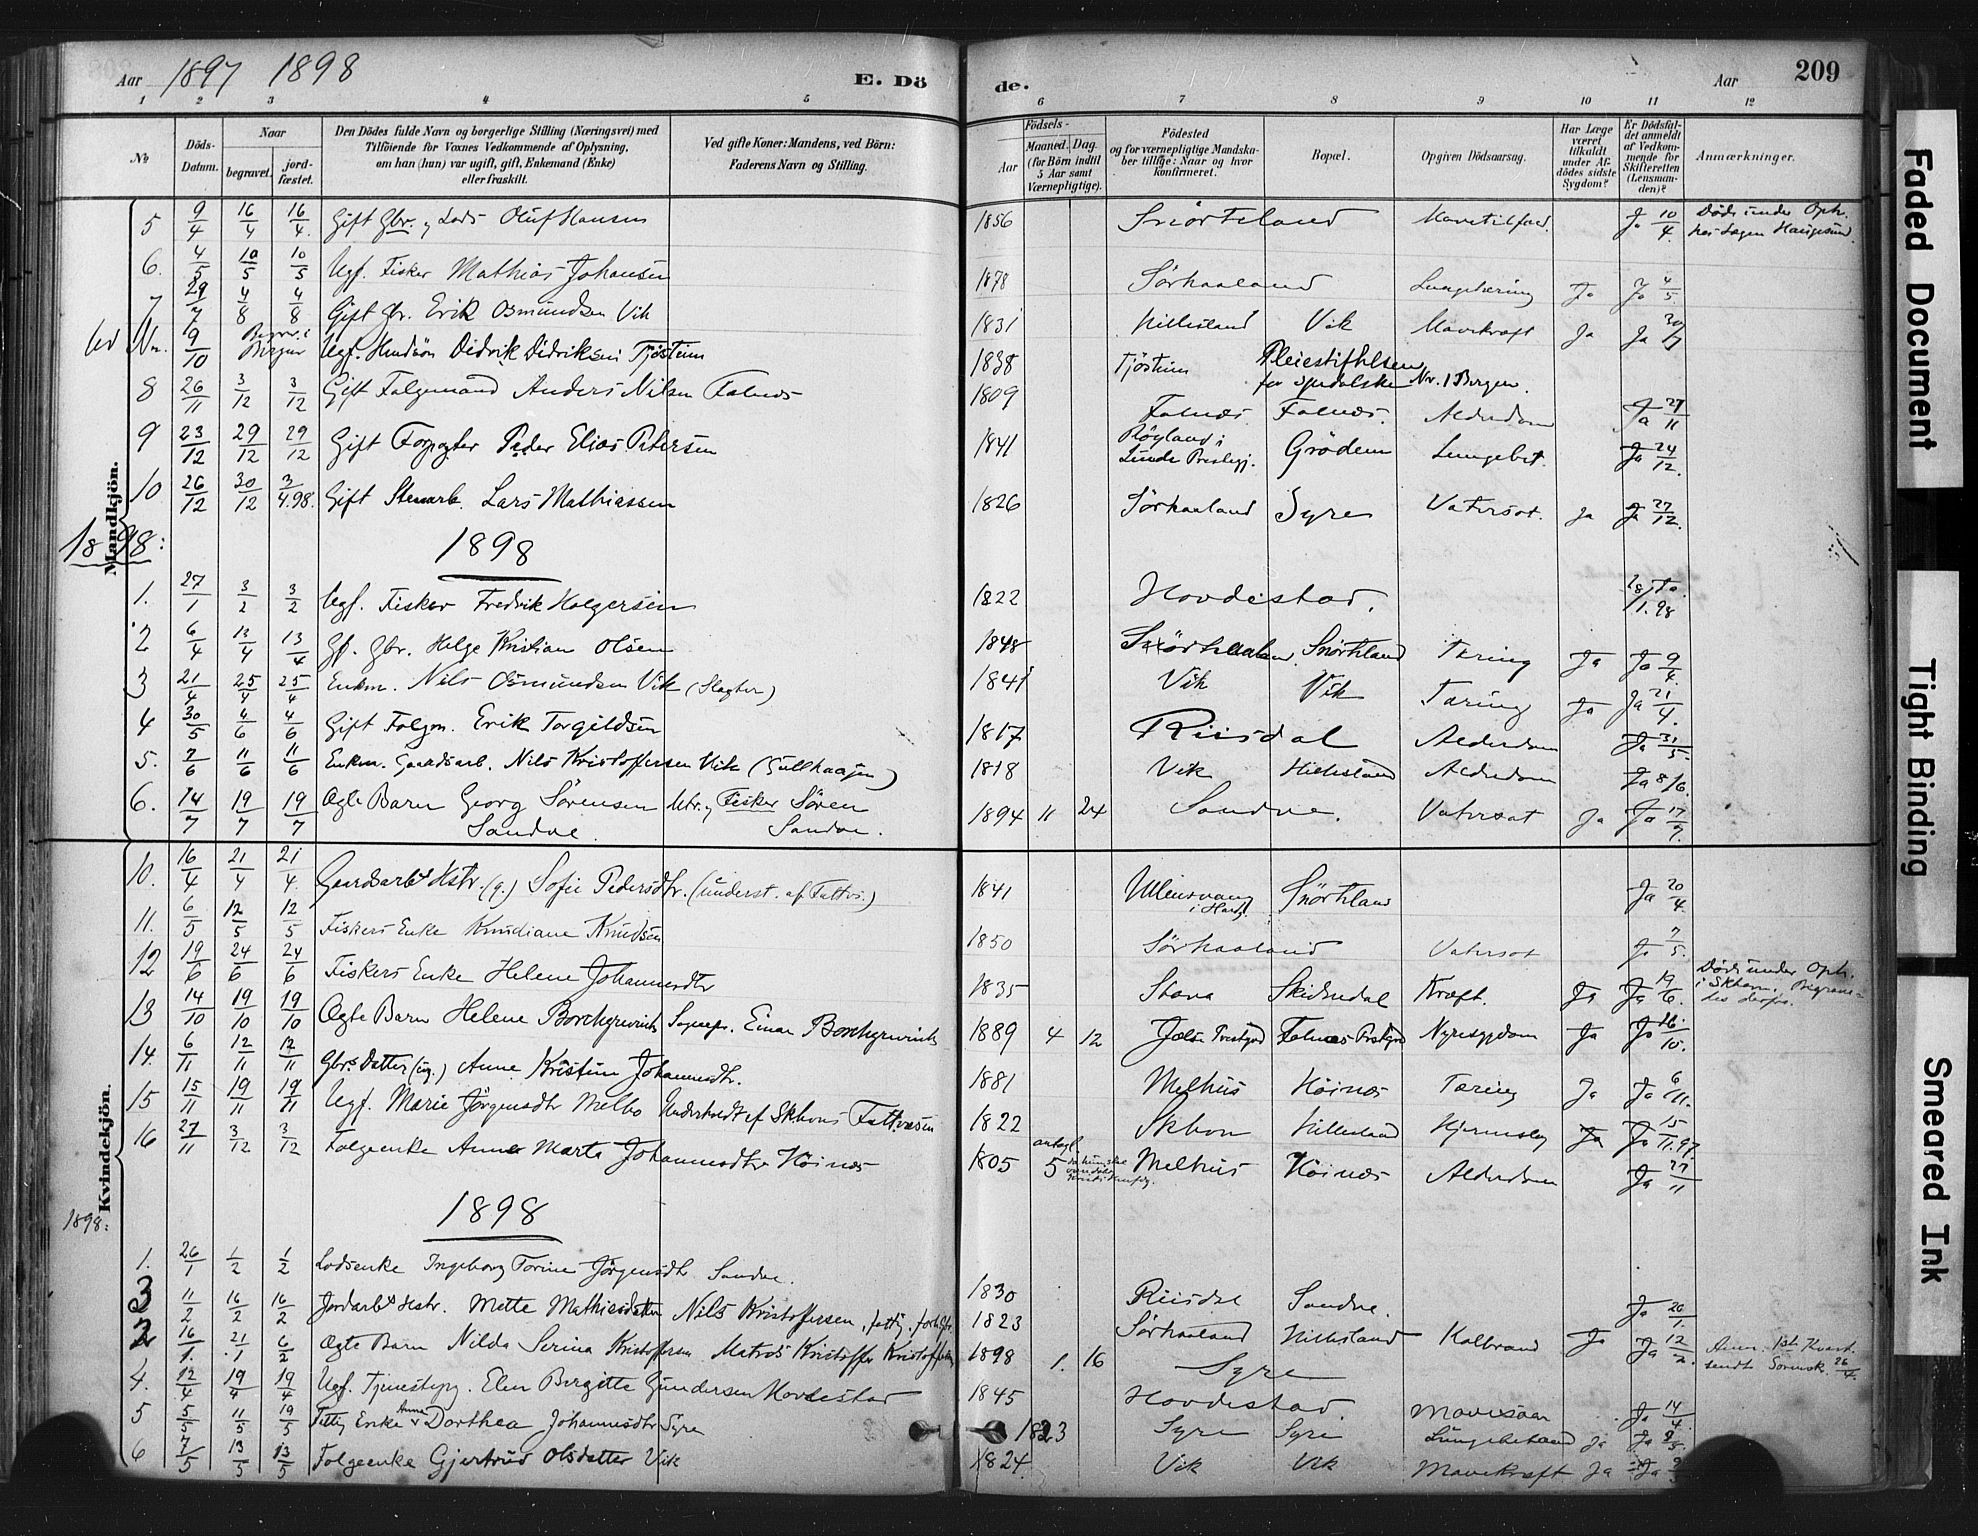 Aar 1897 1898 E. Dö
de. Aar 209
1 2 3 4 5 6 7 8 9 10 11 12
No
Döds-Datum.
Naar
begravet.
jord-fæstet.
Den Dödes fulde Navn og borgerlige Stilling (Næringsvei) med
Tilföiende for Voxnes Vedkommende af Oplysning,
om han (hun) var ugift, gift, Enkemand (Enke)
eller fraskilt.
Ved gifte Koner: Mandens, ved Börn:
Faderens Navn og Stilling.
Födsels-
Aar
Maaned. Dag.
(for Börn indtil
5 Aar samt
Værnepligtige).
Födested
og for værnepligtige Mandska-
ber tillige: Naar og hvor
konfirmeret.
Bopæl.
Opgiven Dödsaarsag.
Har Læge
været
tilkaldt
under Af-
dödes sidste
Sygdom?
Er Dödsfal-
det anmeldt
af Vedkom-
mende for
Skifteretten
(Lensman-
den)?
Anmærkninger.
Mandkjön.
5 9/4 16/4 16/4 Gift Gbr. og Lods Oluf Hansen 1856 Snörteland Ja 10/4 Död under Oph. hos Lægen Haugesund.
6. 4/5 10/5 10/5 Ugf. Fisker Mathias Johansen 1878 Sörhaaland Ja Ja 4/5
7 29/7 4/8 4/8 Gift Gbr. Erik Osmundsen Vik 1831 Hillesland Vik Mavekræft Ja Ja 30/7
9/10 Begrav. i Bergen Ugf. Didrik Didriksen Tjöstem 1838 Tjöstem Pleiestiftelsen for spedalske Nr. 1 Bergen.
8 26/11 3/12 3/12 Gift Folgemand Anders Nilsen Falnæs 1809 Falnæs Falnæs. Alderdom Ja 27/11
9 23/12 29/12 29/12 Gift Forpagter Peder Elias Petersen 1841 Röyland i Lunde Prestegj. Grödem Lungebet. Ja 24/12.
10 26/12 30/12 3/4.98. Gift Stenarb. Lars Mathiassen 1826 Sörhaaland Syre Vatersot. Ja Ja 27/12.
1898: 1898
1. 27/1 3/2 3/2 Ugf. Fisker Fredrik Holgersen 1822 Hovdestad. 28/1.98 Ja
2 6/4 13/4 13/4 Gf. Gbr. Helge Kristian Olsen 1848 Snörteland Tæring Ja Ja 9/4.
3 21/4 25/4 25/4 Enkm. Nils Osmundsen Vik (Slagter) 1841 Vik Vik Tæring Ja Ja 21/4.
4 30/5 4/6 4/6 Gift Folgm. Erik Torgildsen 1817 Riisdal Alderdom Ja 31/5
5. 7/6 11/6 11/6 Enkm. Gaardsarb. Nils Kristoffersen Vik (Gullhaagen) 1818 Vik Hillesland Alderdom Ja 8/6.
6. 14/7 19/7 19/7 Ægte Barn Georg Sörensen Sandve. Mtr. og Fisker Sören Sandve. 1894 11 24 Sandve. Vatersot Ja Ja 17/7.
Kvindekjön.
10. 16/4 21/4 21/4. Gaardsarbs Hstr. (g.) Sofie Pedersdtr. (underst. af Fattv.) 1841 Ullensvang i Hard. Snörteland Ja 20/4
11. 6/5 12/5 12/5 Fiskers Enke Knudiane Knudsen 1850 Sörhaaland Vatersot Ja 7/5.
12 19/6 24/6 24/6 Fiskers Enke Helene Johannesdtr 1835 Stava Skidsdal Kræft. Ja Ja 19/6. Död under Oph. i Skhavn. Begravedes derfra.
13 14/10 19/10 19/10 Ægte Barn Helene Borchgrevink Sognepr. Einar Borchgrevink 1889 4 12 Jelse Prestgrd Falnæs Prestgrd Nyresygdom Ja Ja 16/10.
14. 6/11 12/11 12/11 Gbrs Datter (ug.) Anne Kristine Johannesdtr. 1881 Melhus Höinæs Tæring Ja Ja 6/11.
15 15/11 19/11 19/11 Ugf. Marie Jörgensdtr Melbo Underholdt af Skhavns Fattvæsen 1822 Skhavn Hillesland Ja Ja 15/11.97.
16 27/11 3/12 3/12 Folgeenke Anne Marta Johannesdtr Höinæs 1805 Melhus Höinæs Alderdom Ja 27/11
1898: 1898
1. 26/1 1/2 1/2 Lodsenke Ingeborg Torine Jörgensdtr Sandve. 1830 Riisdal Sandve. Ja 26/1.
3 11/2 16/2 16/2 Jordarbs Hstr. Mette Mathiesdatter Nils Kristoffersen, 1823 Sörhaaland Hillesland Koldbrand Ja Ja 12/2.
2 16/1. 21/1 6/2 Ægte Barn Nilda Serina Kristoffersen Matros Kristoffer Kristoffersen 1898 1. 16 Syre Anm. 1ste Kvart. sendt Sorensk. 26/4.
4. 12/4 19/4 19/4 Ugf. Tjenestepg. Elen Birgitte Gundersen Hovdestad 1845 Hovdestad Ja 14/4
5 5/5 11/5 19/5 Fattig Enke Anna Dorthea Johannesdtr Syre 1823 Syre Syre Ja Ja
6 7/5 13/5 13/5 Folgeenke Gjertrud Olsdatter Vik 1824 Vik Vik Mavekræft Ja Ja
Faded Document
Tight Binding
Smeared Ink